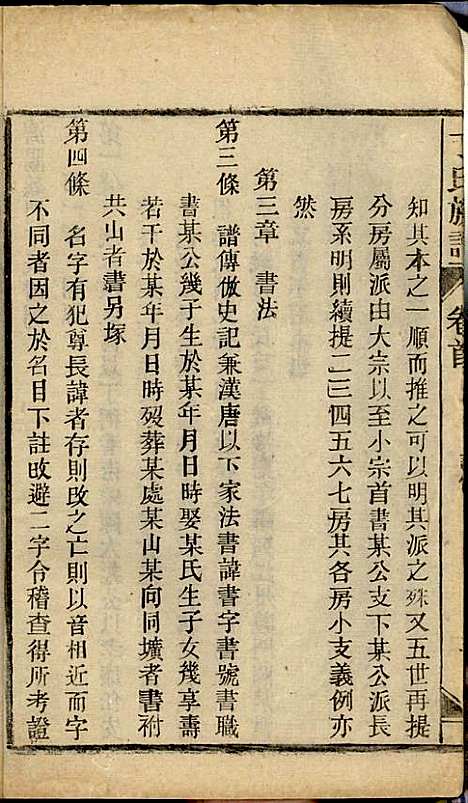 氏族譜
卷首
知其本之一順而推之可以明其派之殊又五世再提
分房屬派由大宗以至小宗首書某公支下某公派長
房系明則續提二三四五六七房其各房小支義例亦
然
第三章 書法
第三條 譜傳倣史記兼漢唐以下家法書諱書字書號書職
書某公幾子生於某年月日時娶某氏生子女幾享壽
若干於某年月日時歿葬某處某山某向同壙者書祔
共山者書另塚
第四條 名字有犯尊長諱者存則改之亡則以音相近而字
不同者因之於名目下註改避二字令稽查得所考證